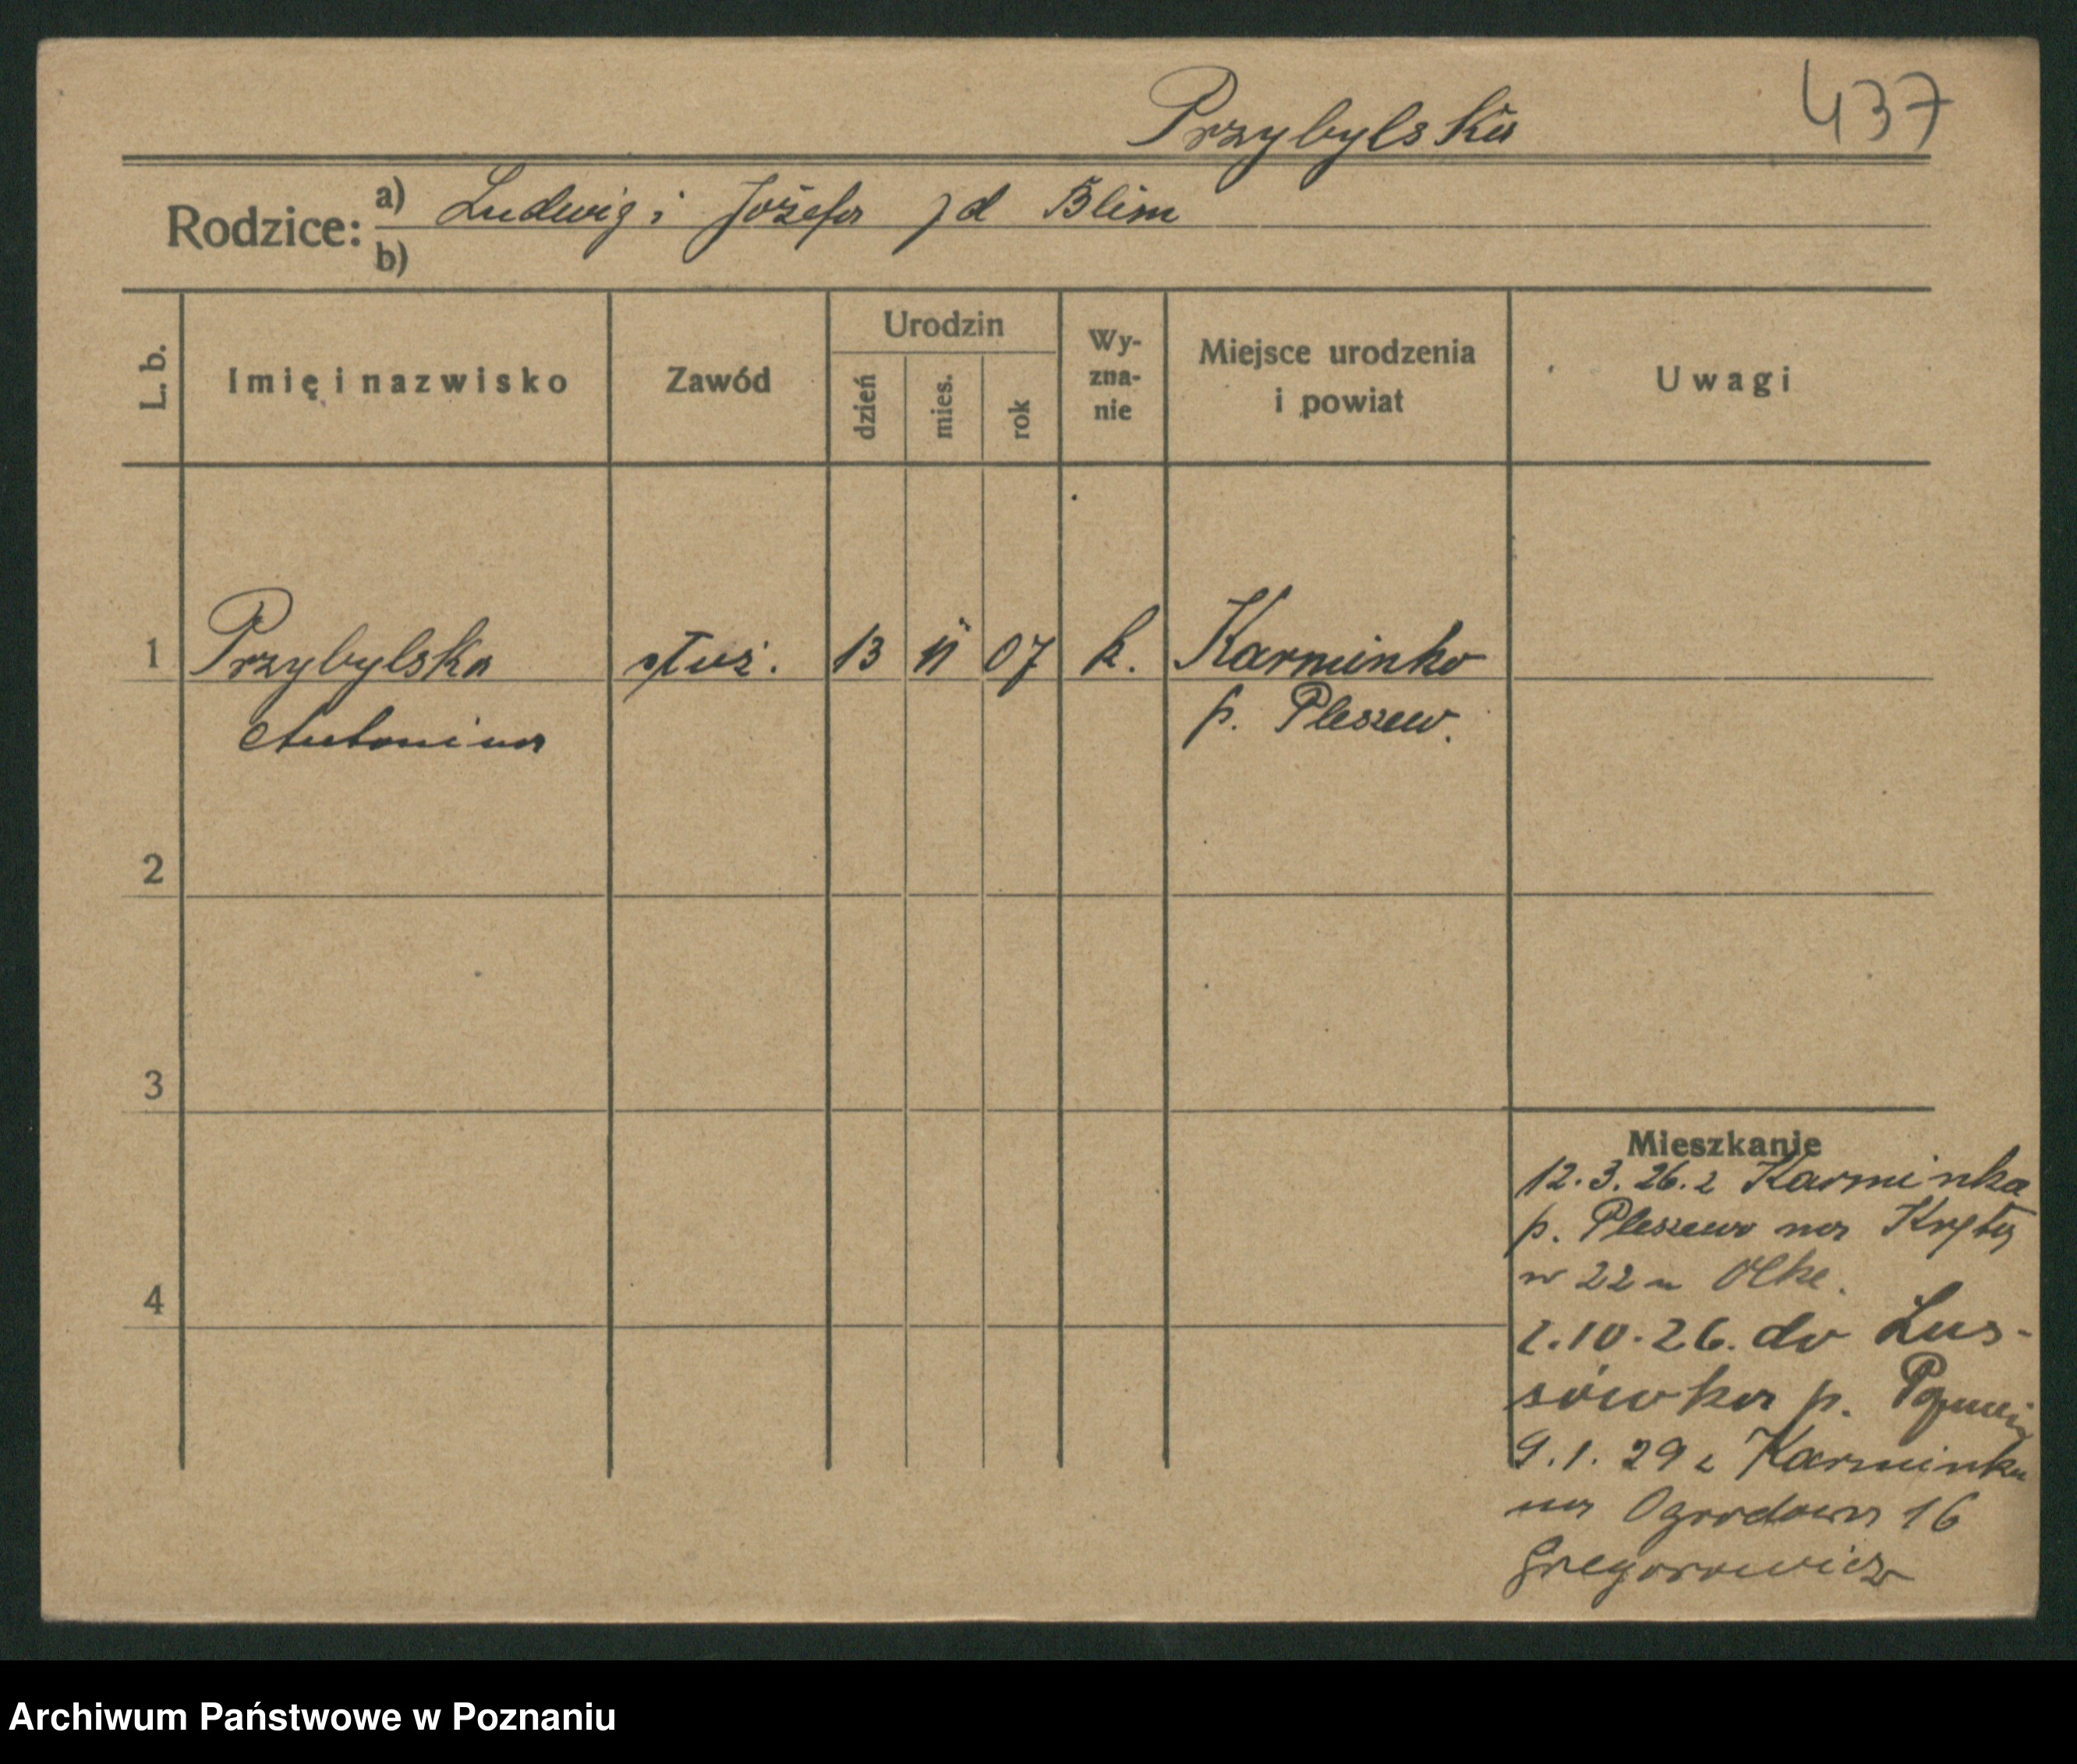 Przybylska
437
Rodzice: a) Ludwig i Józefa zd Blim
b)
L. b.
Imię i nazwisko
Zawód
Urodzin
dzień
mies.
rok
Wy-
zna-
nie
Miejsce urodzenia
i powiat
Uwagi
1 Przybylska służ. 13 11 07 k. Karminko
Antonina p. Pleszew.
2
3
4
Mieszkanie
12.3.26. z Karminka
p. Pleszewo na
w 22 u
2.10.26. do Lus-
sówka p.
9.1.29 z Karminka
na Ogrodowa 16
Gregorowicz
Archiwum Państwowe w Poznaniu